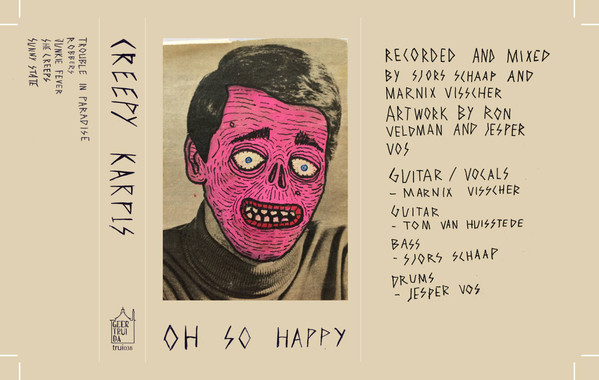 TROUBLE IN PARADISE
ROBBERS
JUNKIE FEVER
SHE CREEPS
SUNNY STATE
CREEPY KARPIS
GEER
TRUI
DA
trui038
OH SO HAPPY
RECORDED AND MIXED
BY SJORS SCHAAP AND
MARNIX VISSCHER
ARTWORK BY RON
VELDMAN AND JESPER
VOS
GUITAR / VOCALS
- MARNIX VISSCHER
GUITAR
- TOM VAN HUISSTEDE
BASS
- SJORS SCHAAP
DRUMS
- JESPER VOS